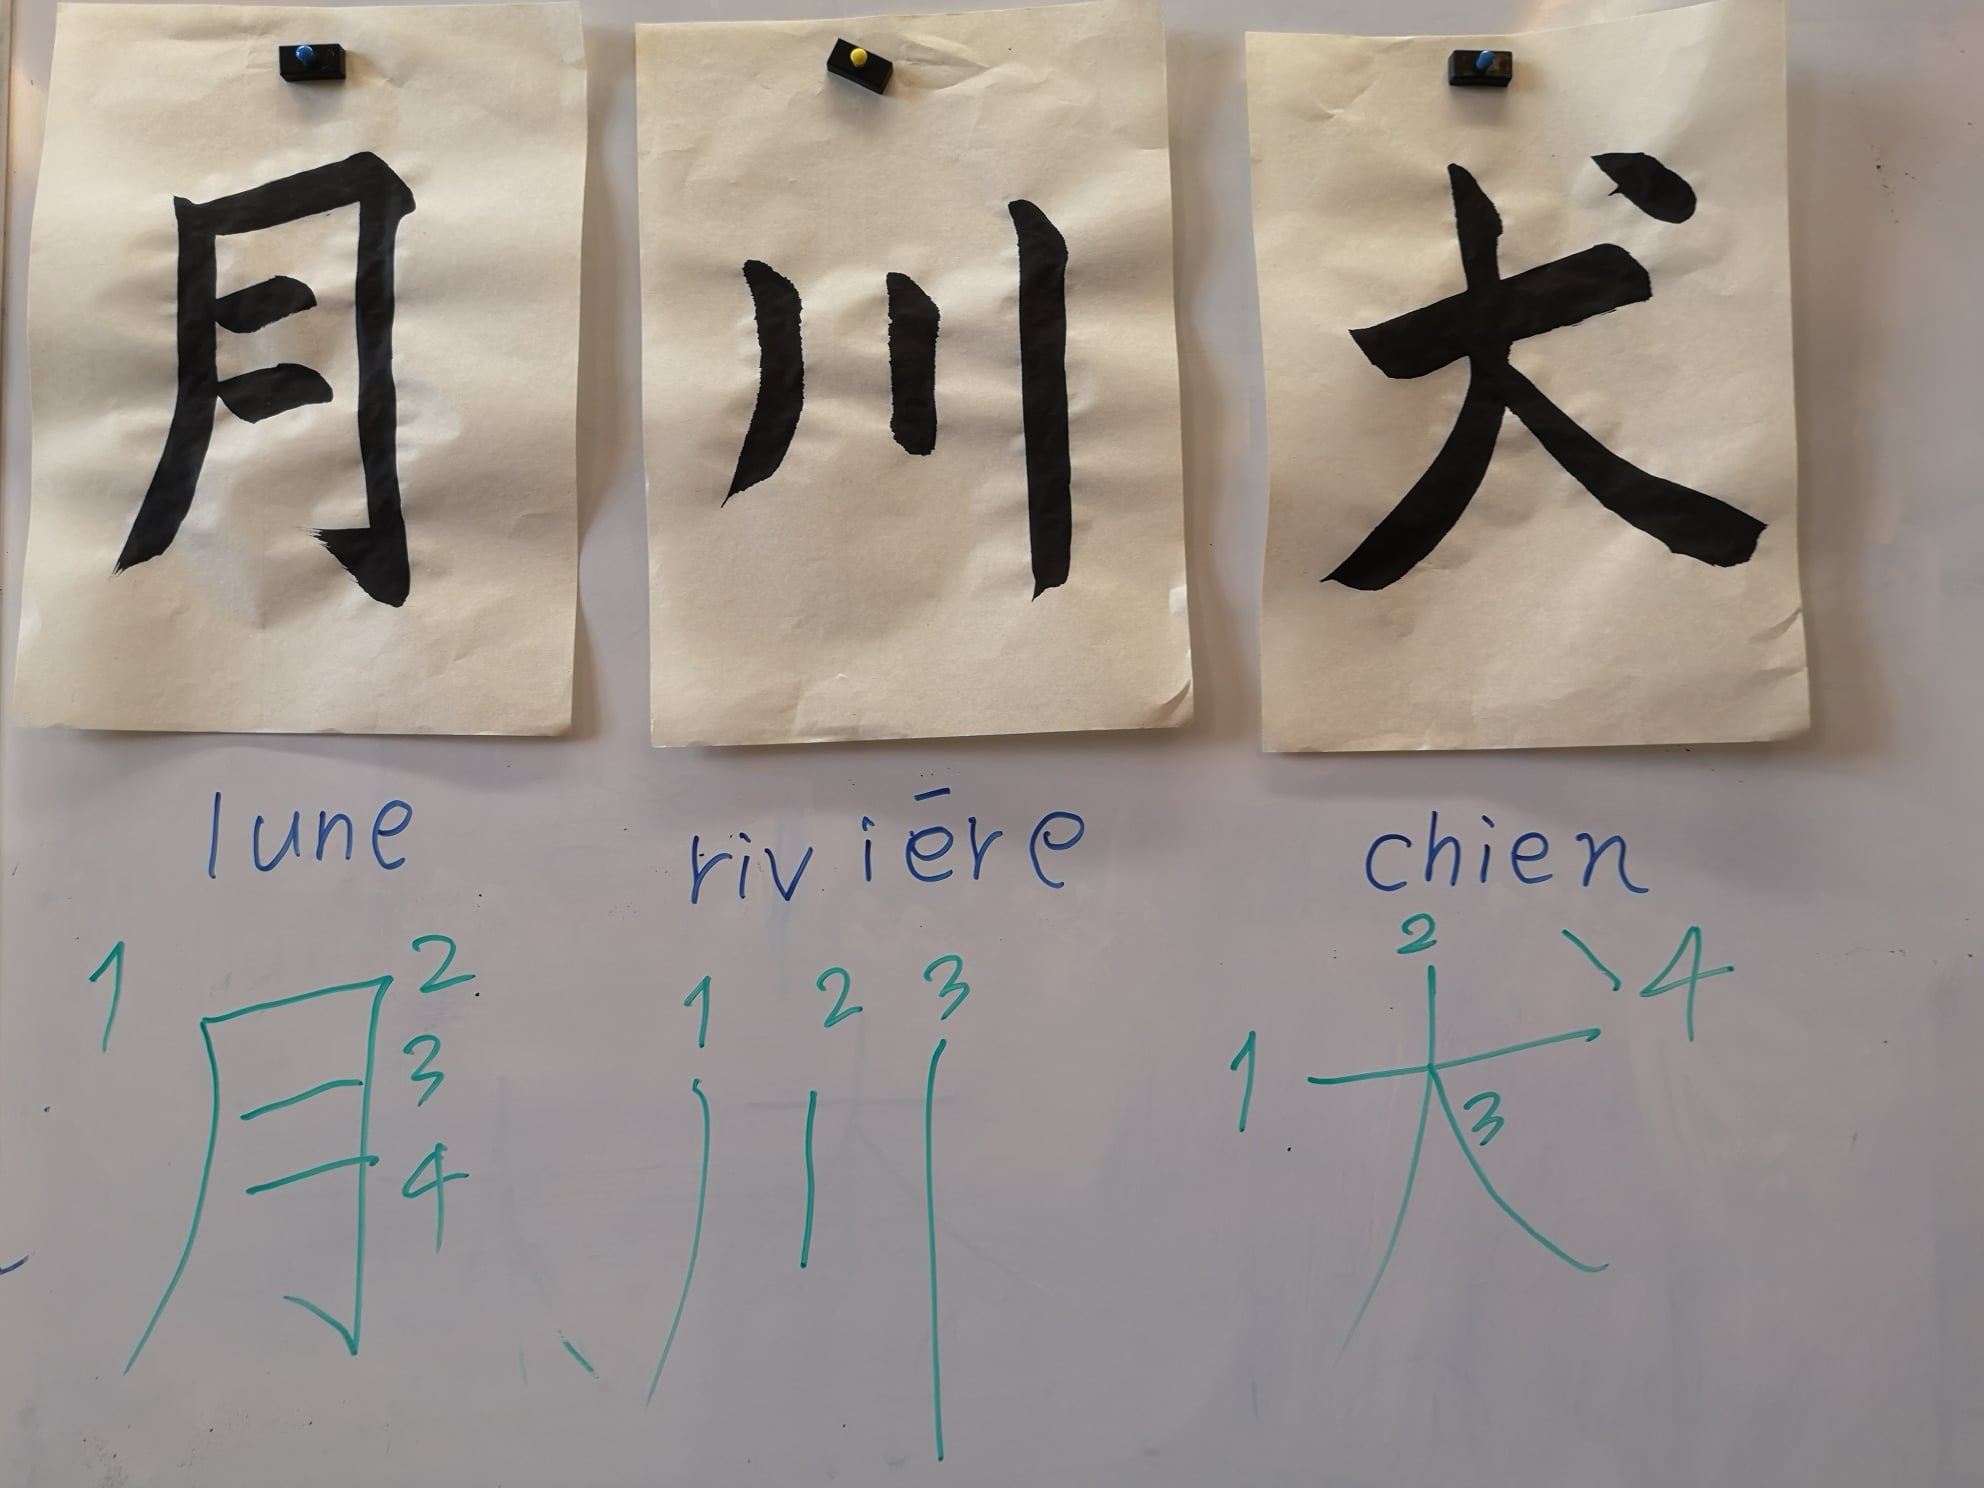 月 川 犬
lune riviēre chien
1 2 3 4 月 1 2 3 川 1 2 3 4 犬